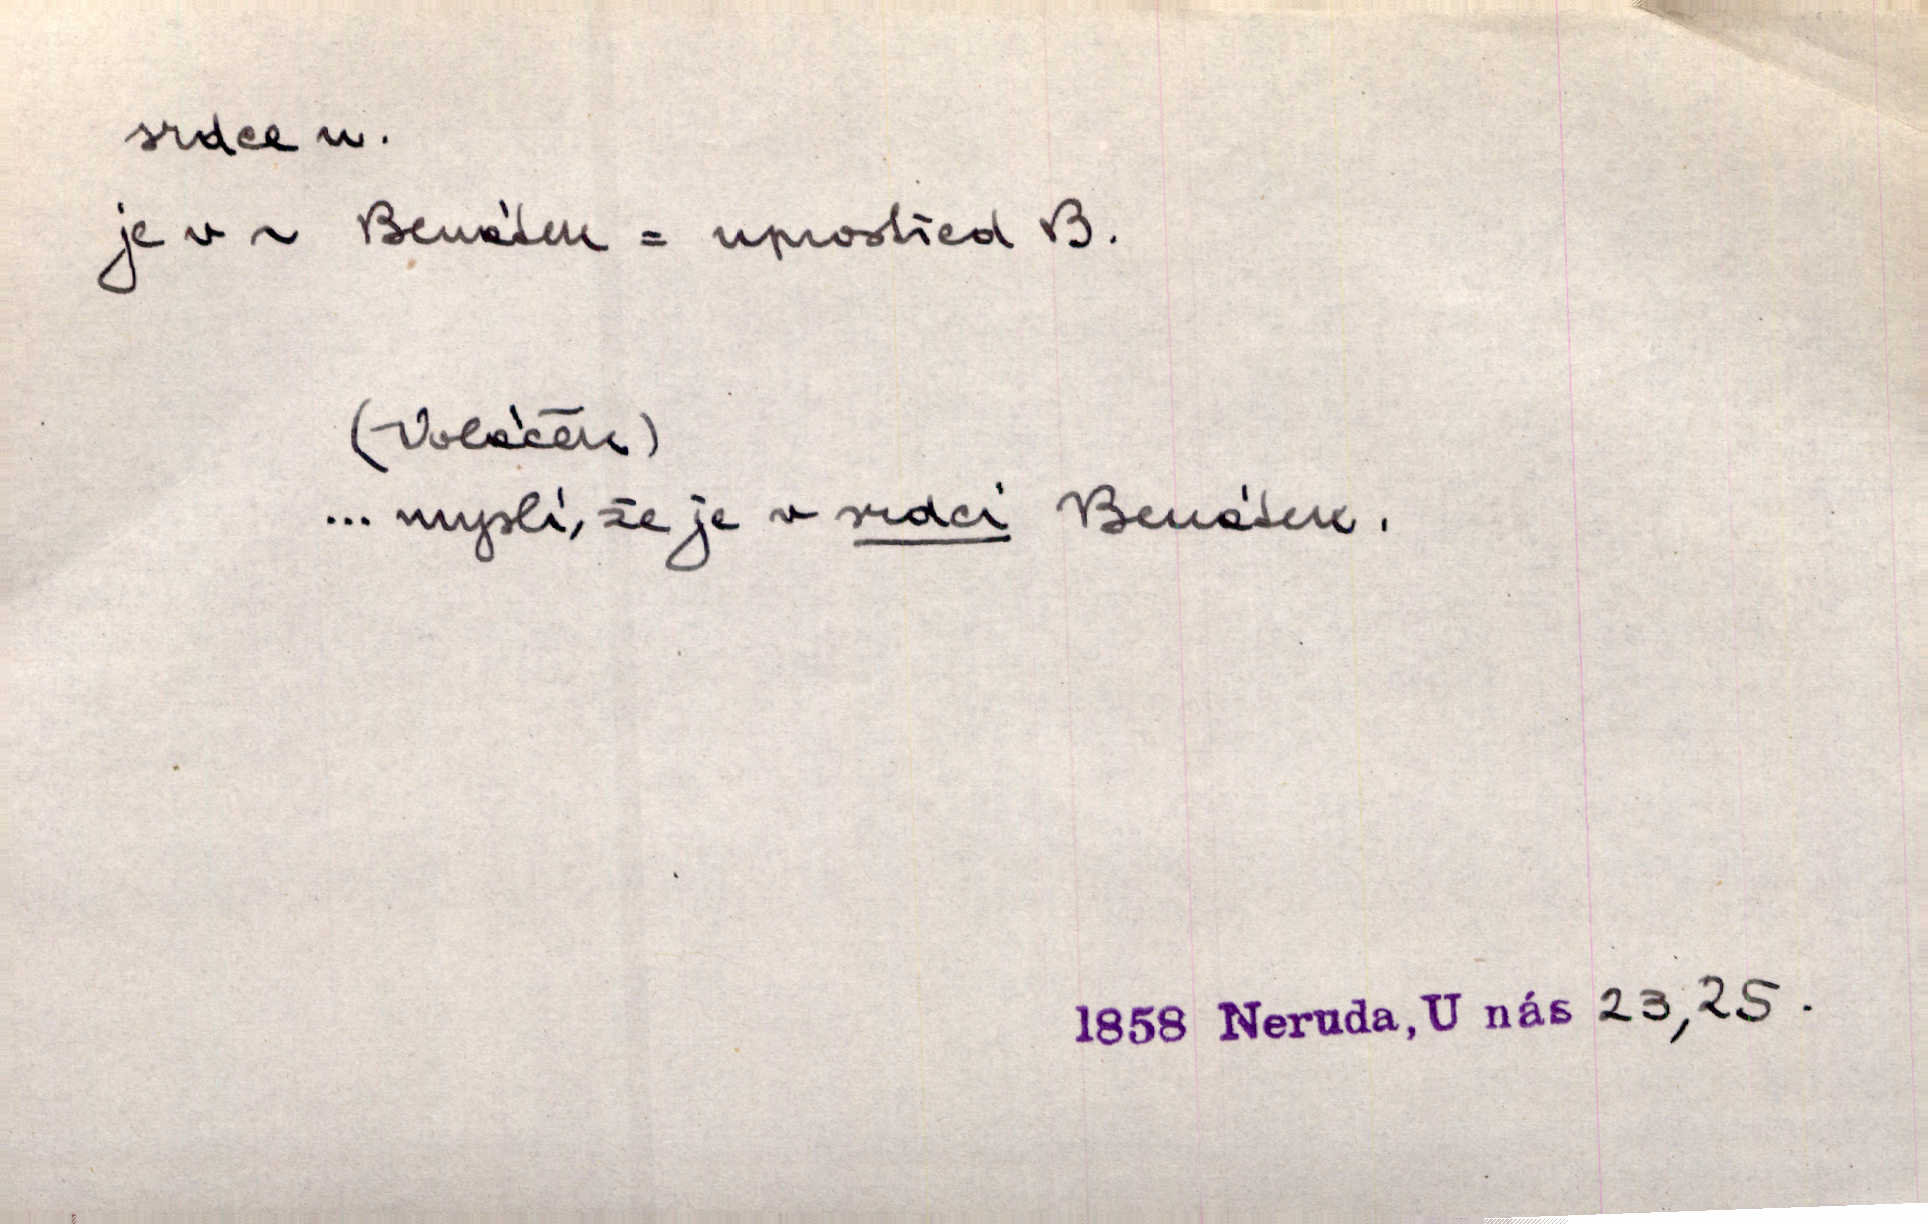 srdce n.
je v ~ Benátek = uprostřed B.
(Voláček)
... myslí, že je v srdci Benátek.
1858 Neruda, U nás 23,25.